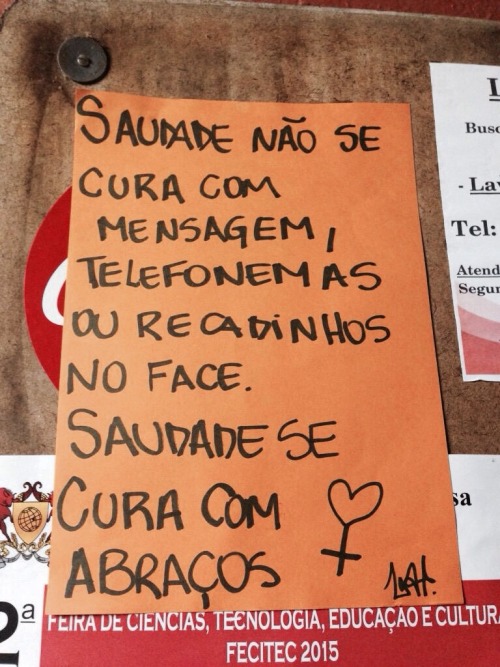 SAUDADE NÃO SE
CURA COM
MENSAGEM,
TELEFONEMAS
OU RECADINHOS
NO FACE.
SAUDADE SE
CURA COM
ABRAÇOS
Busc
- Lav
Tel:
Atend
Segun
sa
2ª
FEIRA DE CIÊNCIAS, TECNOLOGIA, EDUCAÇÃO E CULTURA
FECITEC 2015